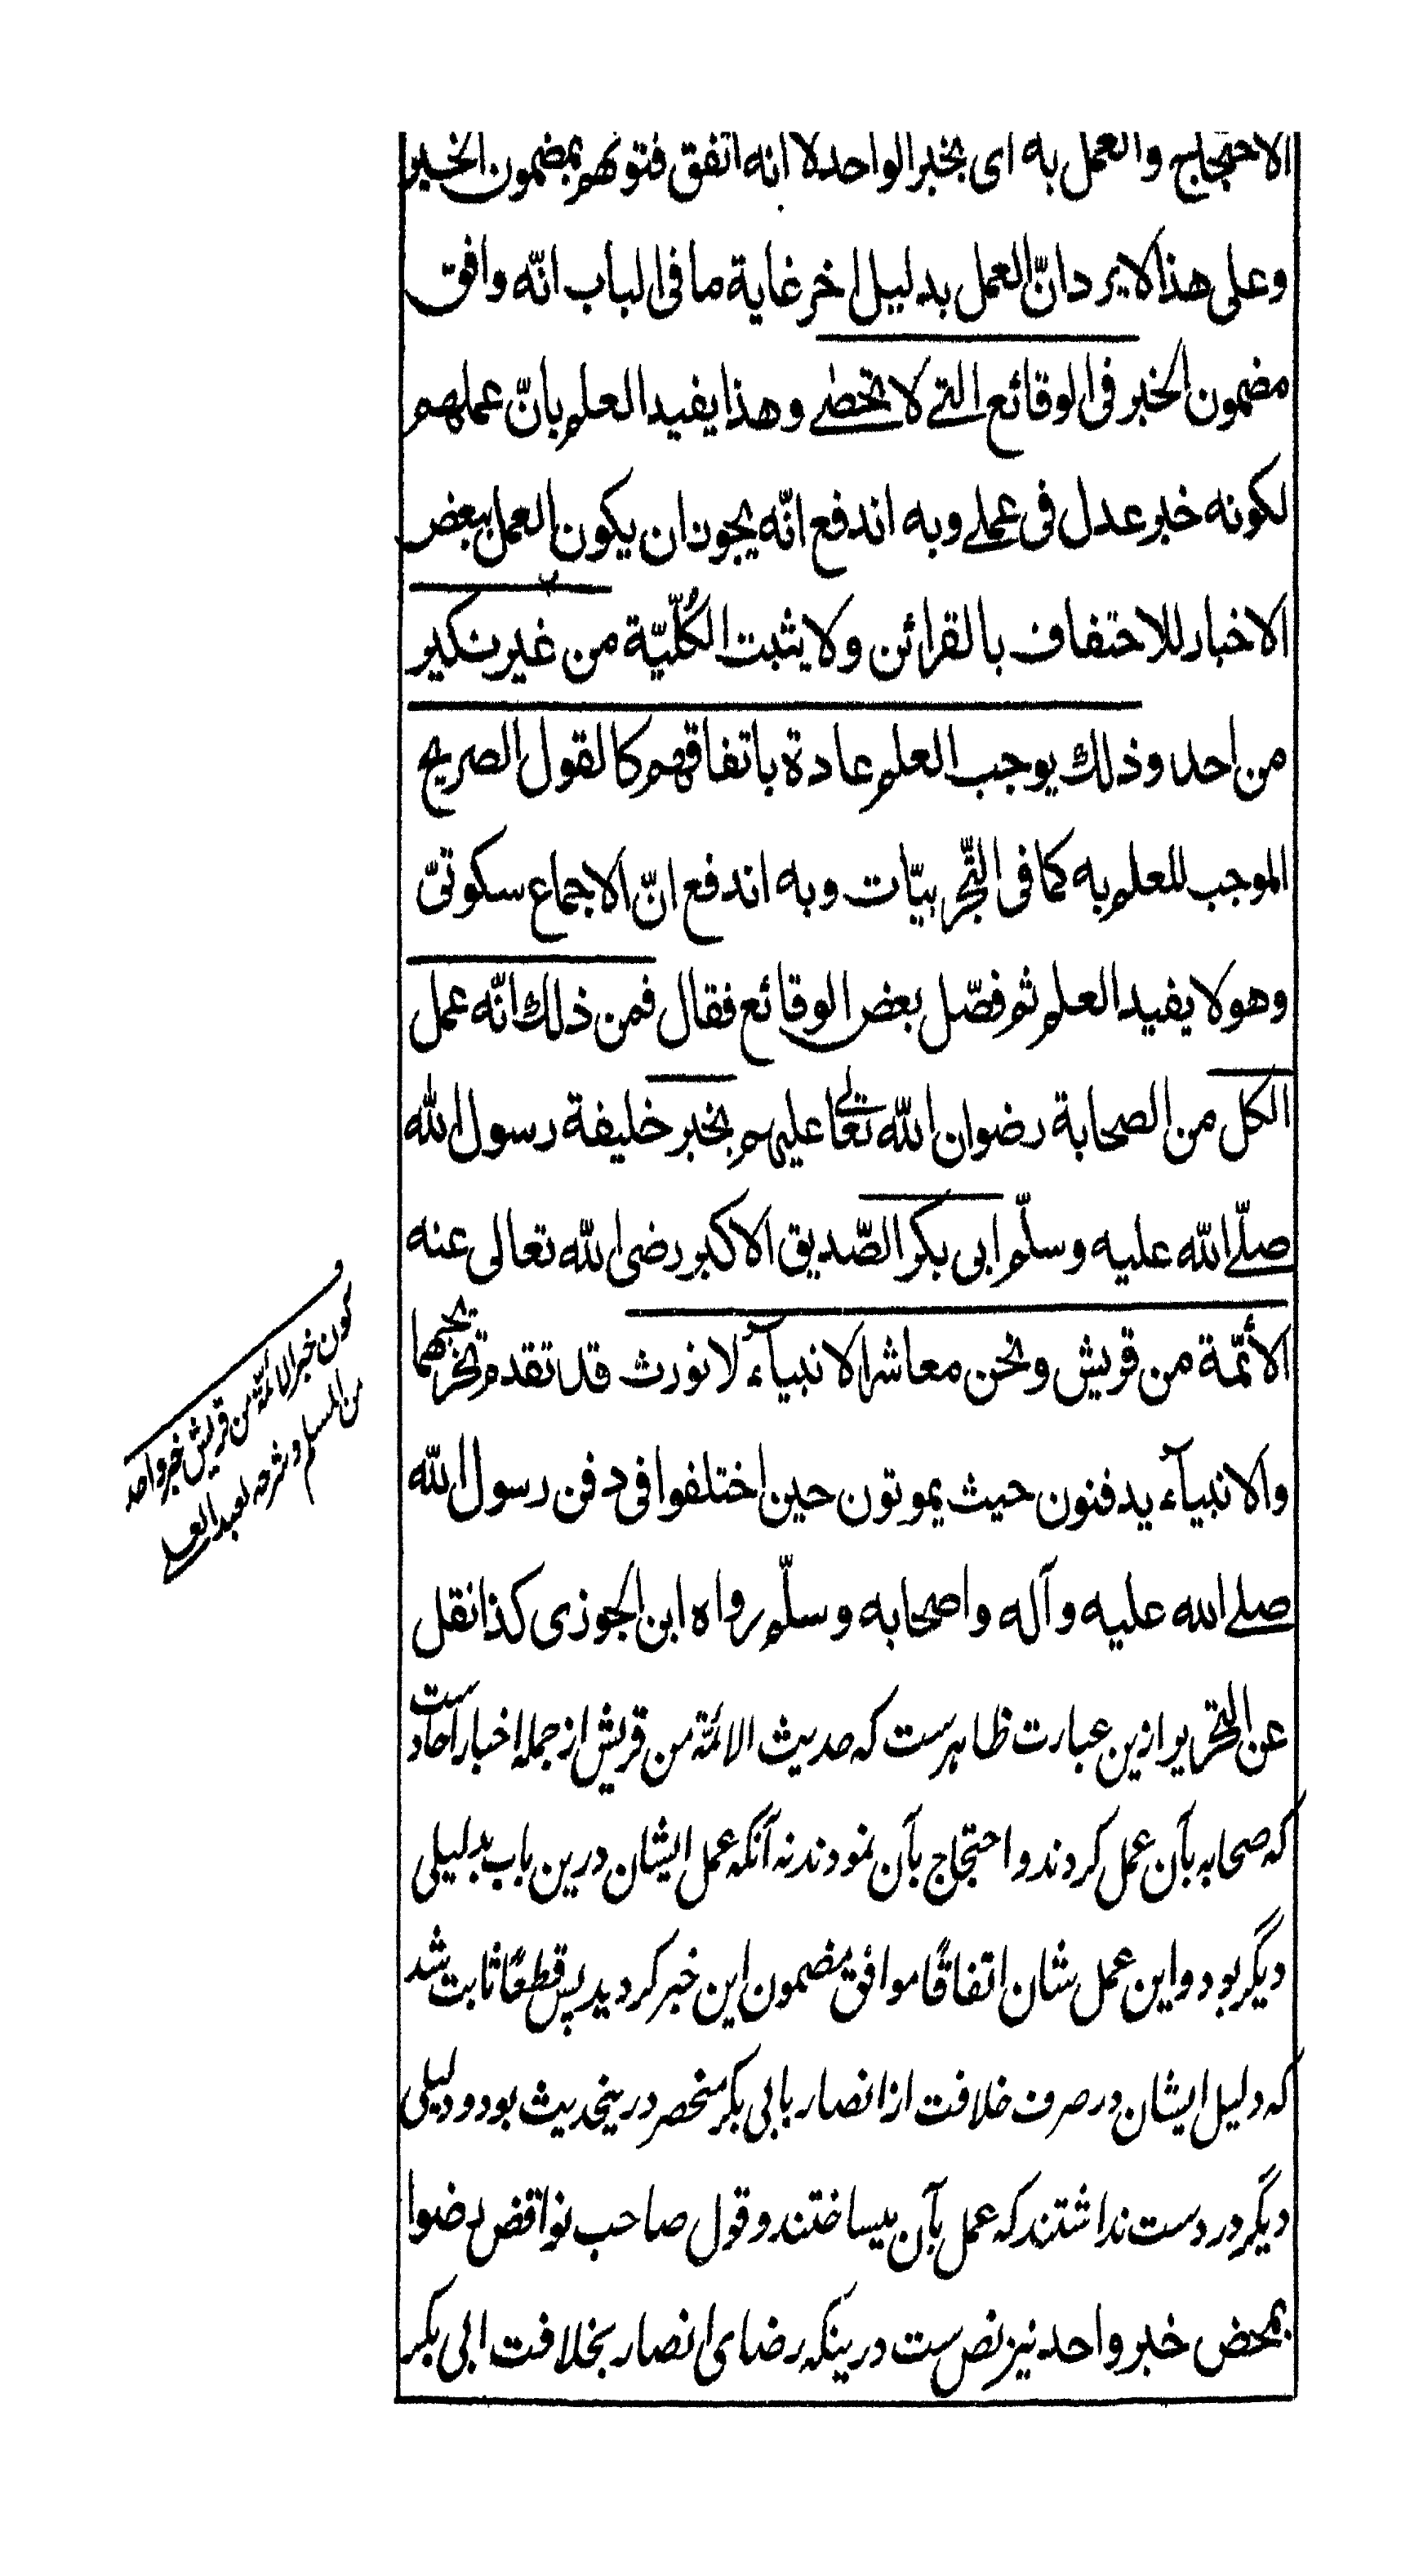 الاحتجاج والعمل به ای بخبر الواحد لا انه اتفق فتوٮهم بمضمون الخبر
وعلی هذا لا یرد انّ العمل بدلیل اخر غایة ما فی الباب انّه وافق
مضمون الخبر فی الوقائع التے لا تحصٰے وهذا یفید العلم بانّ عملهم
لکونه خبر عدل فی عملے وبه اندفع انّه یجوز ان یکون العمل ببعض
الاخبار للاحتفاف بالقرائن ولا یثبت الکُلّیّة من غیر نکیر
من احد وذلك یوجب العلم عادة باتفاقهم کالقول الصریح
الموجب للعلم به کما فی التّجربیّات وبه اندفع انّ الاجماع سکوتیّ
وهو لا یفید العلم ثم فصّل بعض الوقائع فقال فمن ذلك انّه عمل
الکل من الصحابة رضوان اللّه تعالٰے علیهم بخبر خلیفة رسول اللّه
صلّے اللّه علیه وسلّم ابی بکر الصّدیق الاکبر رضی اللّه تعالی عنه
الأئمّة من قریش ونحن معاشر الانبیآء لا نورث قد تقدم تخریجهما
والانبیآء یدفنون حیث یموتون حین اختلفوا فی دفن رسول اللّه
صلے الله علیه وآله واصحابه وسلّم رواه ابن الجوزی کذا نقل
عن التحریر ازین عبارت ظاهرست که حدیث الائمّة من قریش از جمله اخبار احادست
که صحابه بآن عمل کردند و احتجاج بآن نمودند نه آنکه عمل ایشان درین باب بدلیلی
دیگر بود و این عمل شان اتفاقًا موافق مضمون این خبر کردید پس قطعًا ثابت شد
که دلیل ایشان در صرف خلافت از انصار بابی بکر منحصر درینحدیث بود و دلیلی
دیگر در دست نداشتند که عمل بآن میساختند و قول صاحب نواقض رضوا
بمحض خبر واحد نیز نص ست درینکه رضای انصار بخلافت ابی بکر
ف
کون خبر الائمّة من قریش خبر واحد
من المسلم و شرحه لعبد العلے